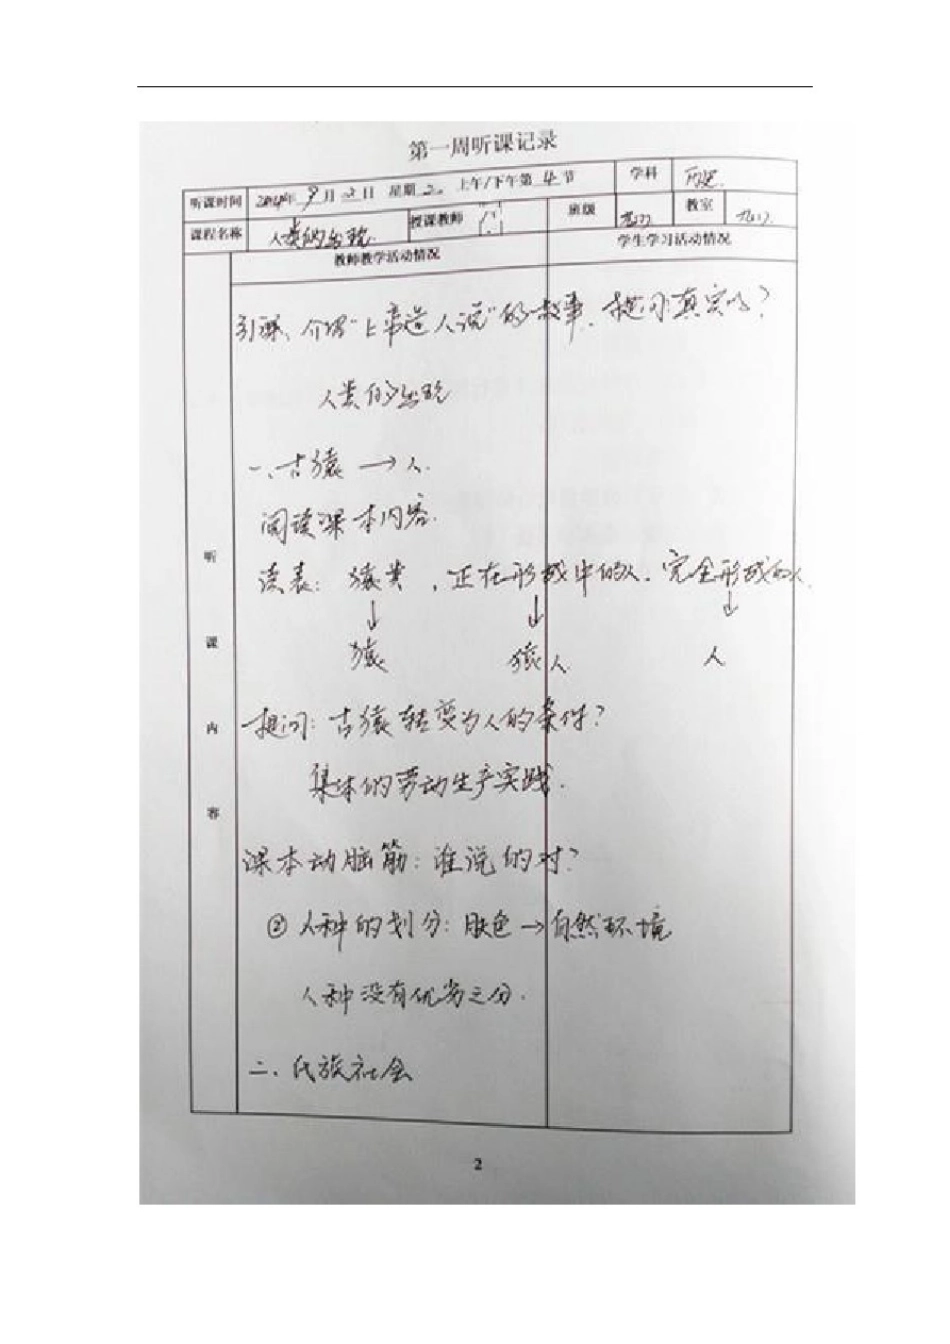 第一周听课记录
听课时间 2014年9月2日 星期二 上午/下午第4节 学科 历史
课程名称 人类的出现 授课教师 班级 九(1) 教室 九(1)
教师教学活动情况 学生学习活动情况
听课内容
引课、介绍"上帝造人说"的故事，提问真实吗？
人类的出现
一、古猿→人.
阅读课本内容.
读表：猿类，正在形成中的人. 完全形成的人.
↓ ↓ ↓
猿 猿人 人
提问：古猿转变为人的条件？
集体的劳动生产实践.
课本动脑筋：谁说的对？
② 人种的划分：肤色→自然环境
人种没有优劣之分.
二、氏族社会
2